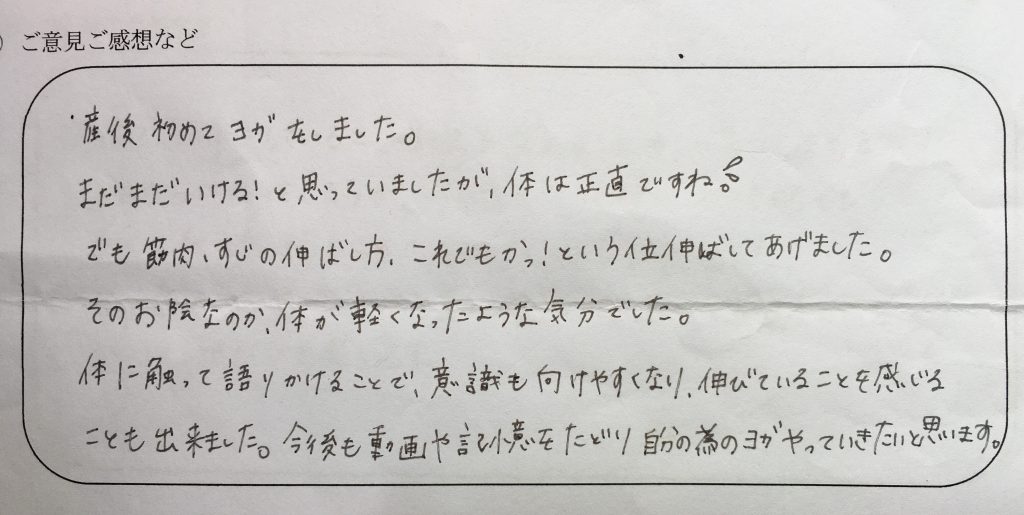 ) ご意見ご感想など
産後 初めてヨガをしました。
まだまだいける!と思っていましたが、体は正直ですね。
でも筋肉、すじの伸ばし方、これでもかっ!という位伸ばしてあげました。
そのお陰なのか、体が軽くなったような気分でした。
体に触って語りかけることで、意識も向けやすくなり、伸びていることを感じる
ことも出来ました。今後も動画や記憶をたどり自分の為のヨガやっていきたいと思います。